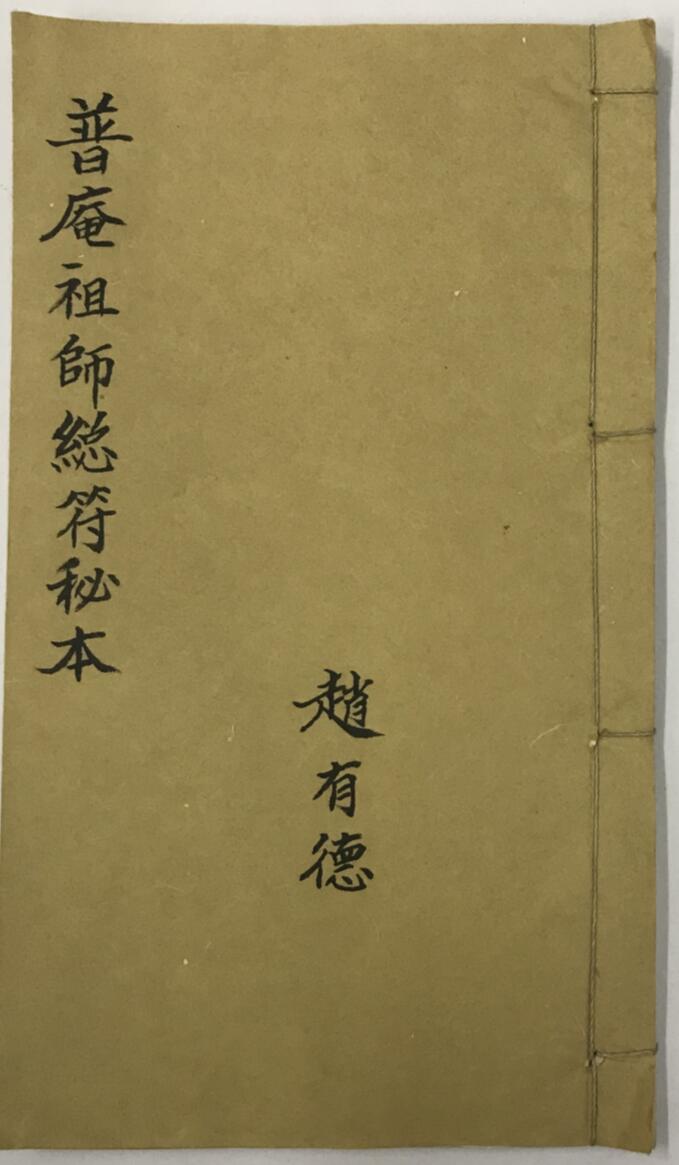 普庵祖師総符秘本
趙有德